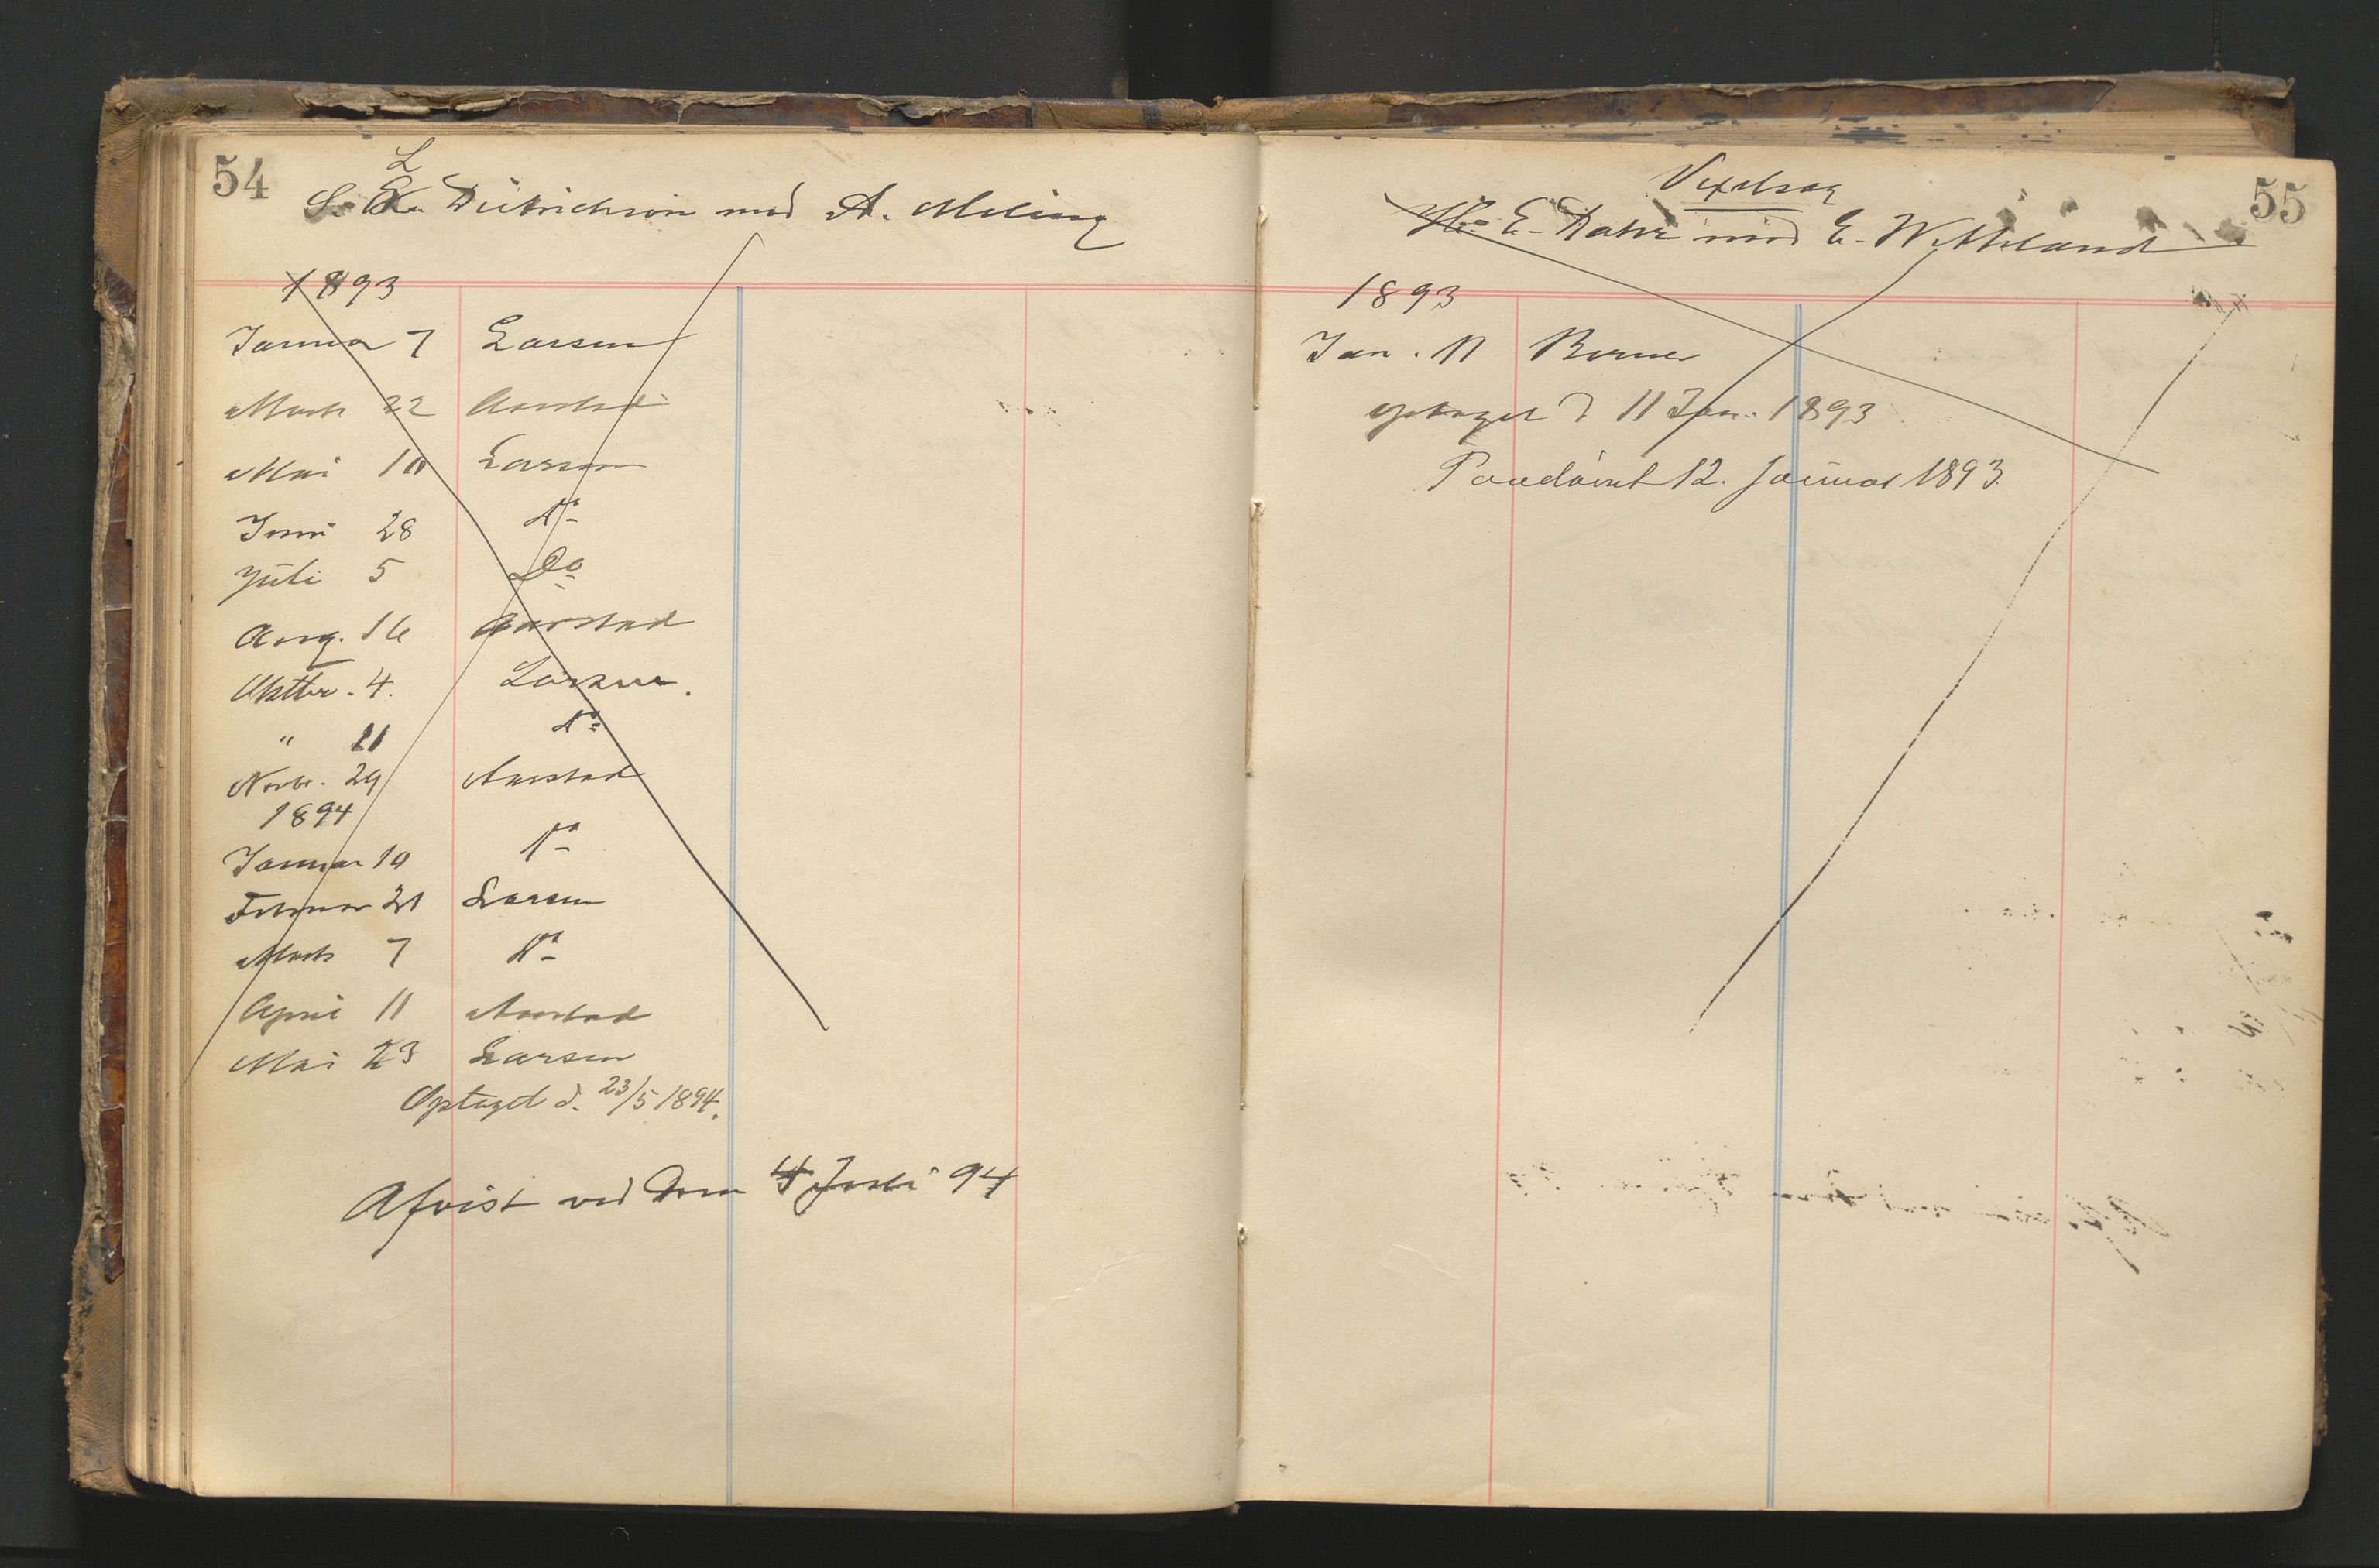 54
L
S. Dietrichson mod A. Meling
1893
Januar 7 Larsen
Marts 22 Aarstad
Mai 10 Larsen
Juni 28 Do
Juli 5 Do
Aug. 16 Aarstad
Oktbr. 4. Larsen.
" 11 Do
Novbr. 29 Aarstad
1894
Januar 10 Do
Februar 21 Larsen
Marts 7 Do
April 11 Aarstad
Mai 23 Larsen
Optaget d. 23/5 1894.
Afvist ved Dom 4 Juli 94
55
Vexelsag
E. Dahr mod E. Wetteland
1893
Jan. 11 Berner
optaget d 11 Jan. 1893
Paadømt 12. Januar 1893.